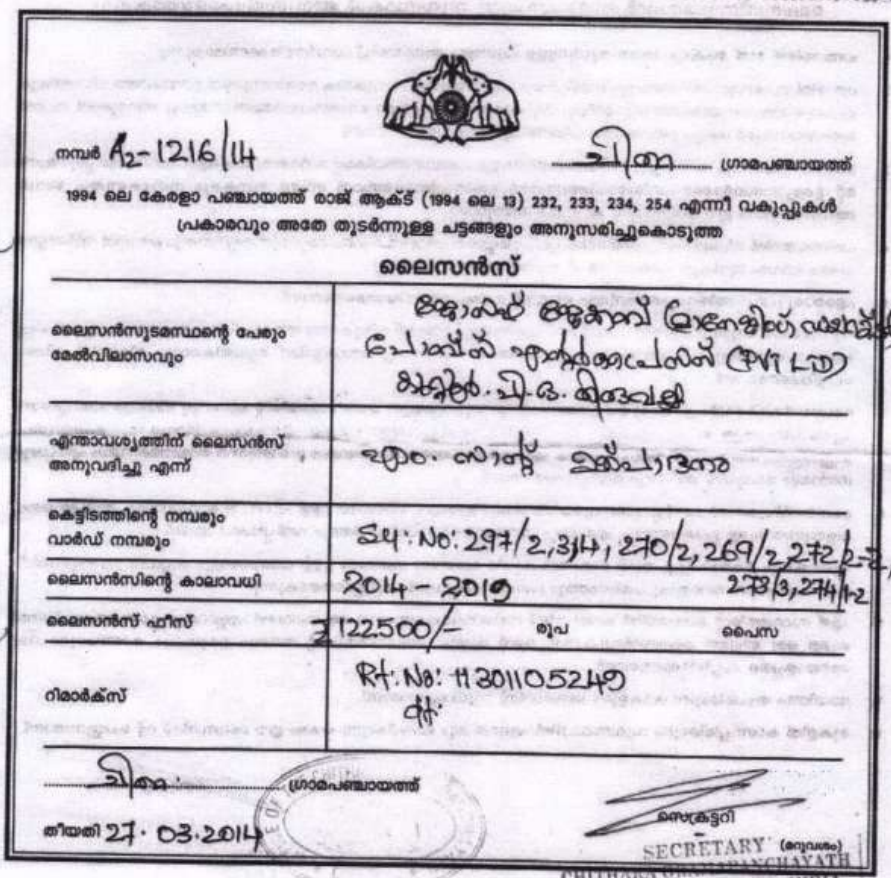 നമ്പർ A2-1216/14
ചിതറ ഗ്രാമപഞ്ചായത്ത്
1994 ലെ കേരളാ പഞ്ചായത്ത് രാജ് ആക്ട് (1994 ലെ 13) 232, 233, 234, 254 എന്നീ വകുപ്പുകൾ
പ്രകാരവും അതേ തുടർന്നുള്ള ചട്ടങ്ങളും അനുസരിച്ചുകൊടുത്ത
ലൈസൻസ്
ലൈസൻസുടമസ്ഥന്റെ പേരും
മേൽവിലാസവും
ജോസഫ് ജേക്കബ് മാനേജിംഗ്
എന്റർപ്രൈസസ് (PVt LTD)
പി.ഒ.
എന്താവശ്യത്തിന് ലൈസൻസ്
അനുവദിച്ചു എന്ന്
എം. സാന്റ് ഉത്പാദനം
കെട്ടിടത്തിന്റെ നമ്പരും
വാർഡ് നമ്പരും
Sy: No: 297/2,3,4, 270/2, 269/2, 272/2-2,
273/3, 274/1-2
ലൈസൻസിന്റെ കാലാവധി
2014 - 2019
ലൈസൻസ് ഫീസ്
22500/- രൂപ പൈസ
റിമാർക്സ്
Rt: No: 11301105249
dt:
ചിതറ ഗ്രാമപഞ്ചായത്ത്
തീയതി 27.03.2014
സെക്രട്ടറി
(മറുവശം)
SECRETARY
CHITHARA GRAMAPANCHAYATH